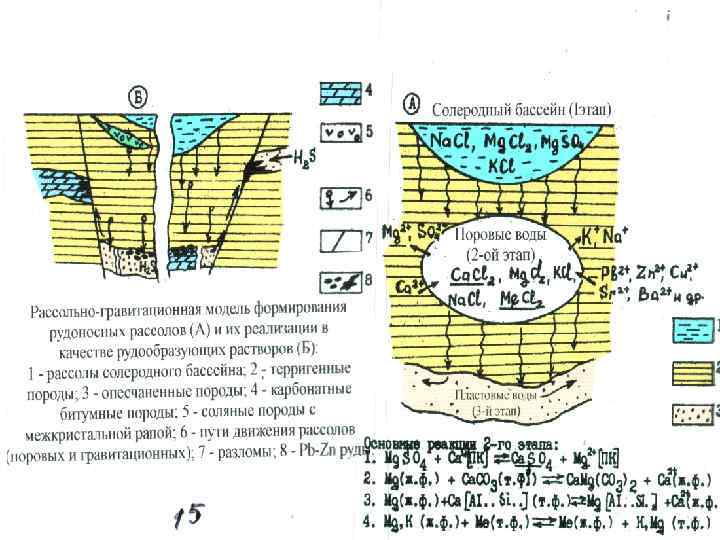 Б
4
5
H₂S
6
7
8
H₂S
Рассольно-гравитационная модель формирования
рудоносных рассолов (А) и их реализации в
качестве рудообразующих растворов (Б):
1 - рассолы солеродного бассейна; 2 - терригенные
породы; 3 - опесчаненные породы; 4 - карбонатные
битумные породы; 5 - соляные породы с
межкристальной рапой; 6 - пути движения рассолов
(поровых и гравитационных); 7 - разломы; 8 - Pb-Zn руды
15
А
Солеродный бассейн (Iэтап)
NaCl, MgCl₂, MgSO₄
KCl
Mg²⁺, SO₄²⁻
Поровые воды
(2-ой этап)
K⁺, Na⁺
Ca²⁺
CaCl₂, MgCl₂, KCl,
NaCl, MeCl₂
Pb²⁺, Zn²⁺, Cu²⁺
Sr²⁺, Ba²⁺ и др.
Пластовые воды
(3-й этап)
1
2
3
Основные реакции 2-го этапа:
1. MgSO₄ + Ca[ПК] ⇌ CaSO₄ + Mg²⁺[ПК]
2. Mg(ж.ф.) + CaCO₃(т.ф) ⇌ CaMg(CO₃)₂ + Ca(ж.ф.)
3. Mg(ж.ф.)+Ca[Al..Si..](т.ф.) ⇌ Mg[Al..Si..] + Ca(ж.ф.)
4. Mg,K (ж.ф.)+ Me(т.ф.) ⇌ Me(ж.ф.) + K,Mg (т.ф.)